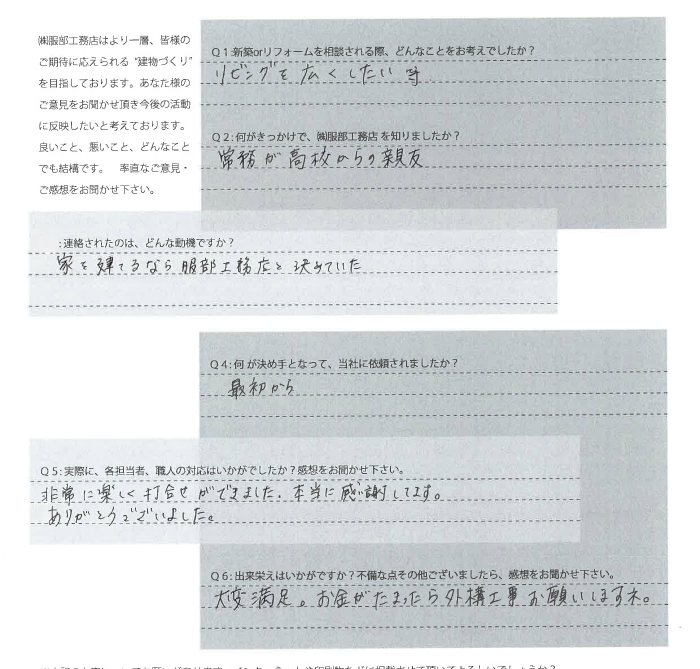 ㈱服部工務店はより一層、皆様の
ご期待に応えられる “建物づくり”
を目指しております。あなた様の
ご意見をお聞かせ頂き今後の活動
に反映したいと考えております。
良いこと、悪いこと、どんなこと
でも結構です。 率直なご意見・
ご感想をお聞かせ下さい。
Q 1 :新築orリフォームを相談される際、どんなことをお考えでしたか？
リビングを広くしたい 等
Q 2 : 何がきっかけで、㈱服部工務店 を知りましたか？
常務が高校からの親友
: 連絡されたのは、どんな動機ですか？
家を建てるなら服部工務店と決めていた
Q 4 : 何 が決め手となって、当社に依頼されましたか？
最初から
Q 5 : 実際に、各担当者、職人の対応はいかがでしたか？感想をお聞かせ下さい。
非常に楽しく打合せができました。本当に感謝してます。
ありがとうございました。
Q 6 : 出来栄えはいかがですか？不備な点その他ございましたら、感想をお聞かせ下さい。
大変満足。お金がたまったら外構工事お願いしますネ。